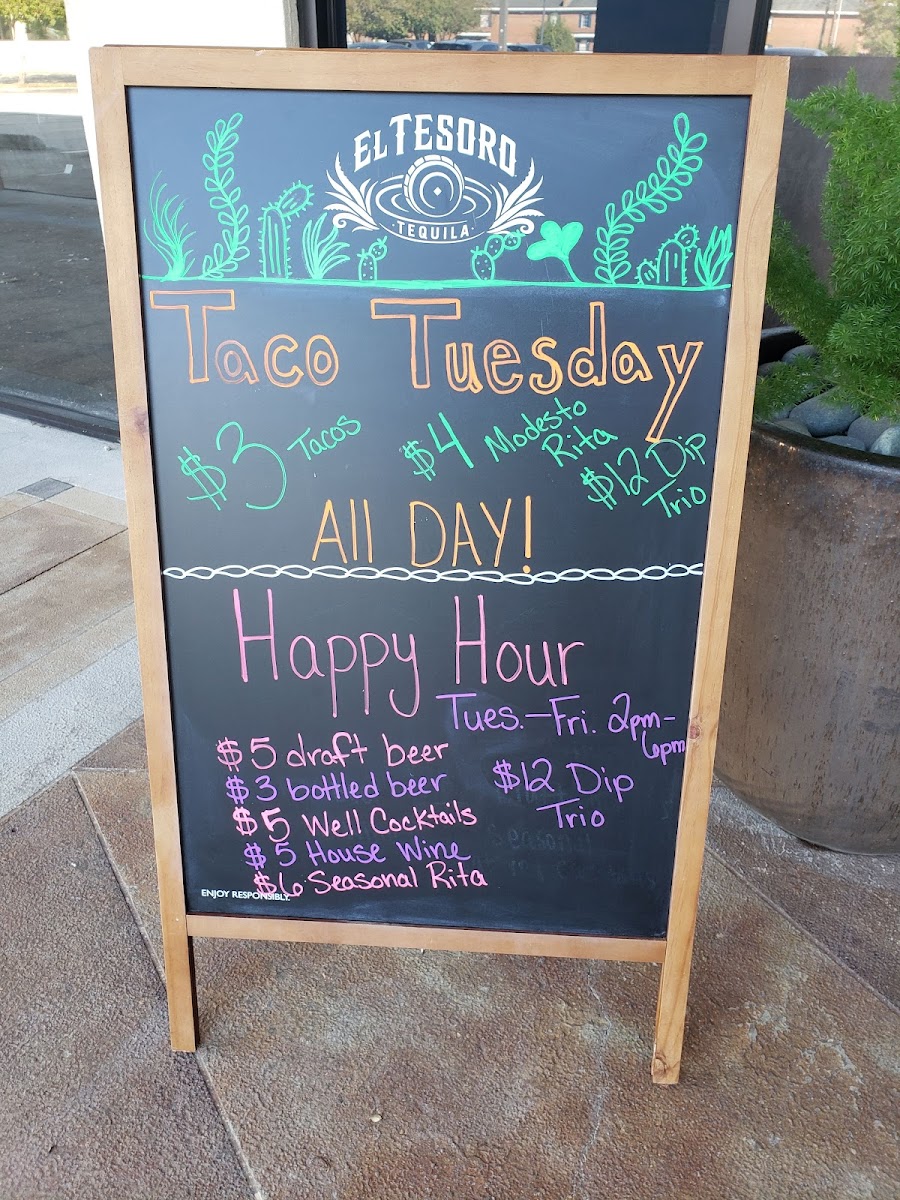 EL TESORO
TEQUILA
Taco Tuesday
$3 Tacos
$4 Modesto
Rita
$12 Dip
Trio
All DAY!
Happy Hour
Tues.-Fri. 2pm-
6pm
$5 draft beer
$3 bottled beer
$5 Well Cocktails
$5 House Wine
$6 Seasonal Rita
$12 Dip
Trio
ENJOY RESPONSIBLY.